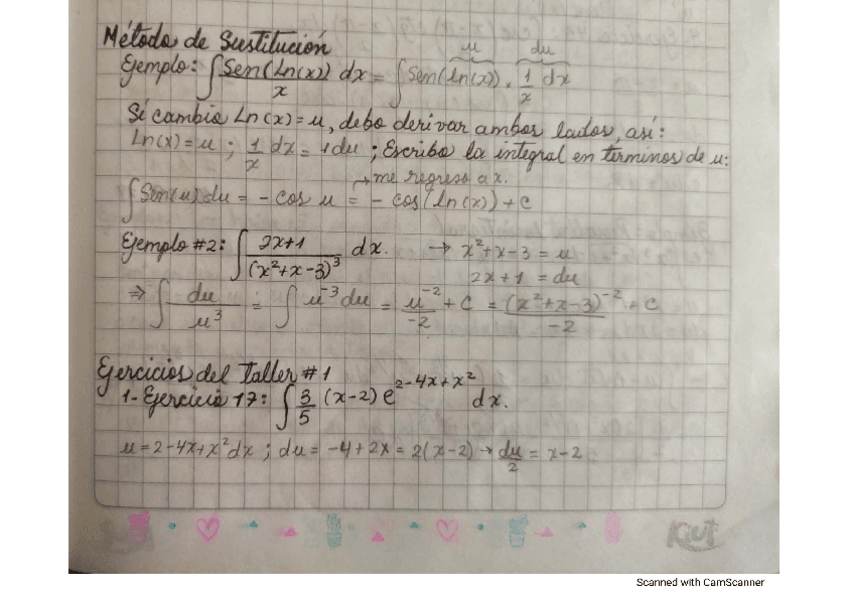 Método de Sustitución
u du
Ejemplo: ∫ Sen(Ln(x))/x dx = ∫ Sen(ln(x)) . 1/x dx
Sí cambio Ln(x) = u, debo derivar ambos lados, así:
Ln(x) = u ; 1/x dx = 1 du ; Escribo la integral en terminos de u:
→ me regreso a x.
∫ Sen(u) du = - cos u = - cos(ln(x)) + c
Ejemplo #2: ∫ 2x+1/(x²+x-3)³ dx. → x²+x-3 = u
2x+1 = du
⇒ ∫ du/u³ = ∫ u⁻³ du = u⁻²/-2 + C = (x²+x-3)⁻²/-2 + C
Ejercicios del Taller #1
1- Ejercicio 17: ∫ 3/5 (x-2) e^(2-4x+x²) dx.
u = 2-4x+x² dx ; du = -4+2x = 2(x-2) → du/2 = x-2
Kiut
Scanned with CamScanner